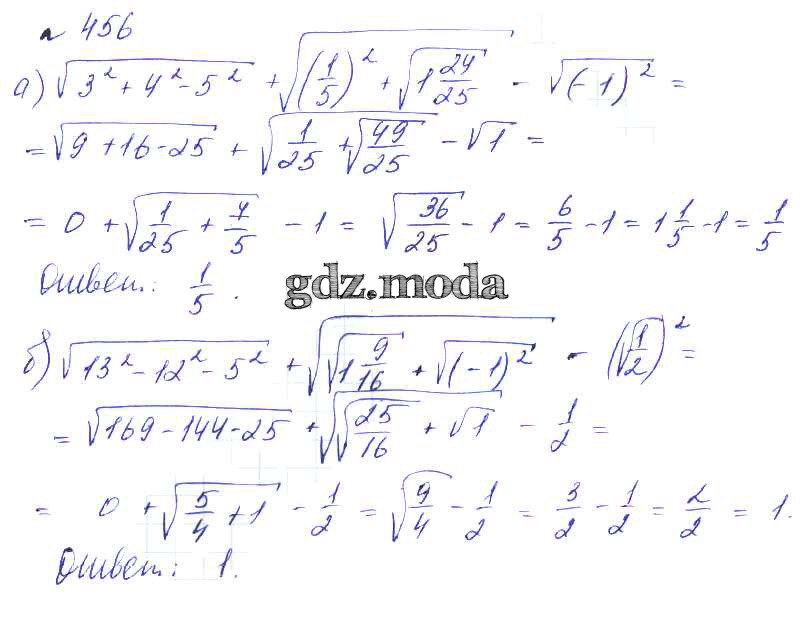 № 456
а) √(3² + 4² - 5²) + √((1/5)² + √(1 24/25)) - √((-1)²) =
= √(9 + 16 - 25) + √(1/25 + √(49/25)) - √1 =
= 0 + √(1/25 + 7/5) - 1 = √(36/25) - 1 = 6/5 - 1 = 1 1/5 - 1 = 1/5
Ответ: 1/5.
gdz.moda
б) √(13² - 12² - 5²) + √(√(1 9/16) + √((-1)²)) - (√(1/2))² =
= √(169 - 144 - 25) + √(√(25/16) + √1) - 1/2 =
= 0 + √(5/4 + 1) - 1/2 = √(9/4) - 1/2 = 3/2 - 1/2 = 2/2 = 1.
Ответ: 1.